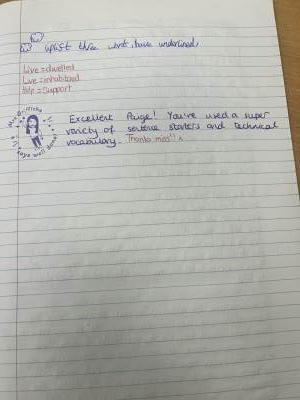 uplift three what have underlined.
Live = dwelled
Live = inhabited
Help = Support
Excellent Paige! You've used a super
variety of sentence starters and technical
vocabulary. Thanks miss!!
says well done